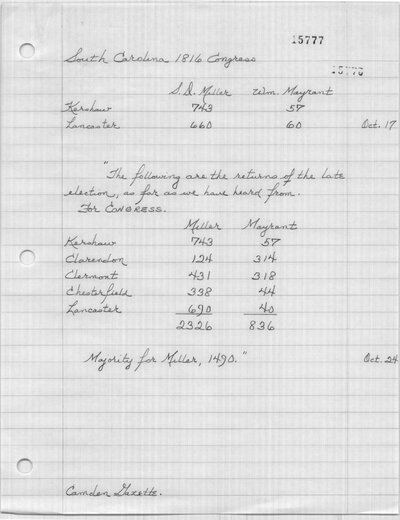 15777
15776
South Carolina 1816 Congress
S.D. Miller Wm. Mayrant
Kershaw 743 57
Lancaster 660 60 Oct. 17
"The following are the returns of the late
election, as far as we have heard from.
For CONGRESS.
Miller Mayrant
Kershaw 743 57
Clarendon 124 314
Clermont 431 318
Chesterfield 338 44
Lancaster 690 40
2326 836
Majority for Miller, 1490." Oct. 24
Camden Gazette.